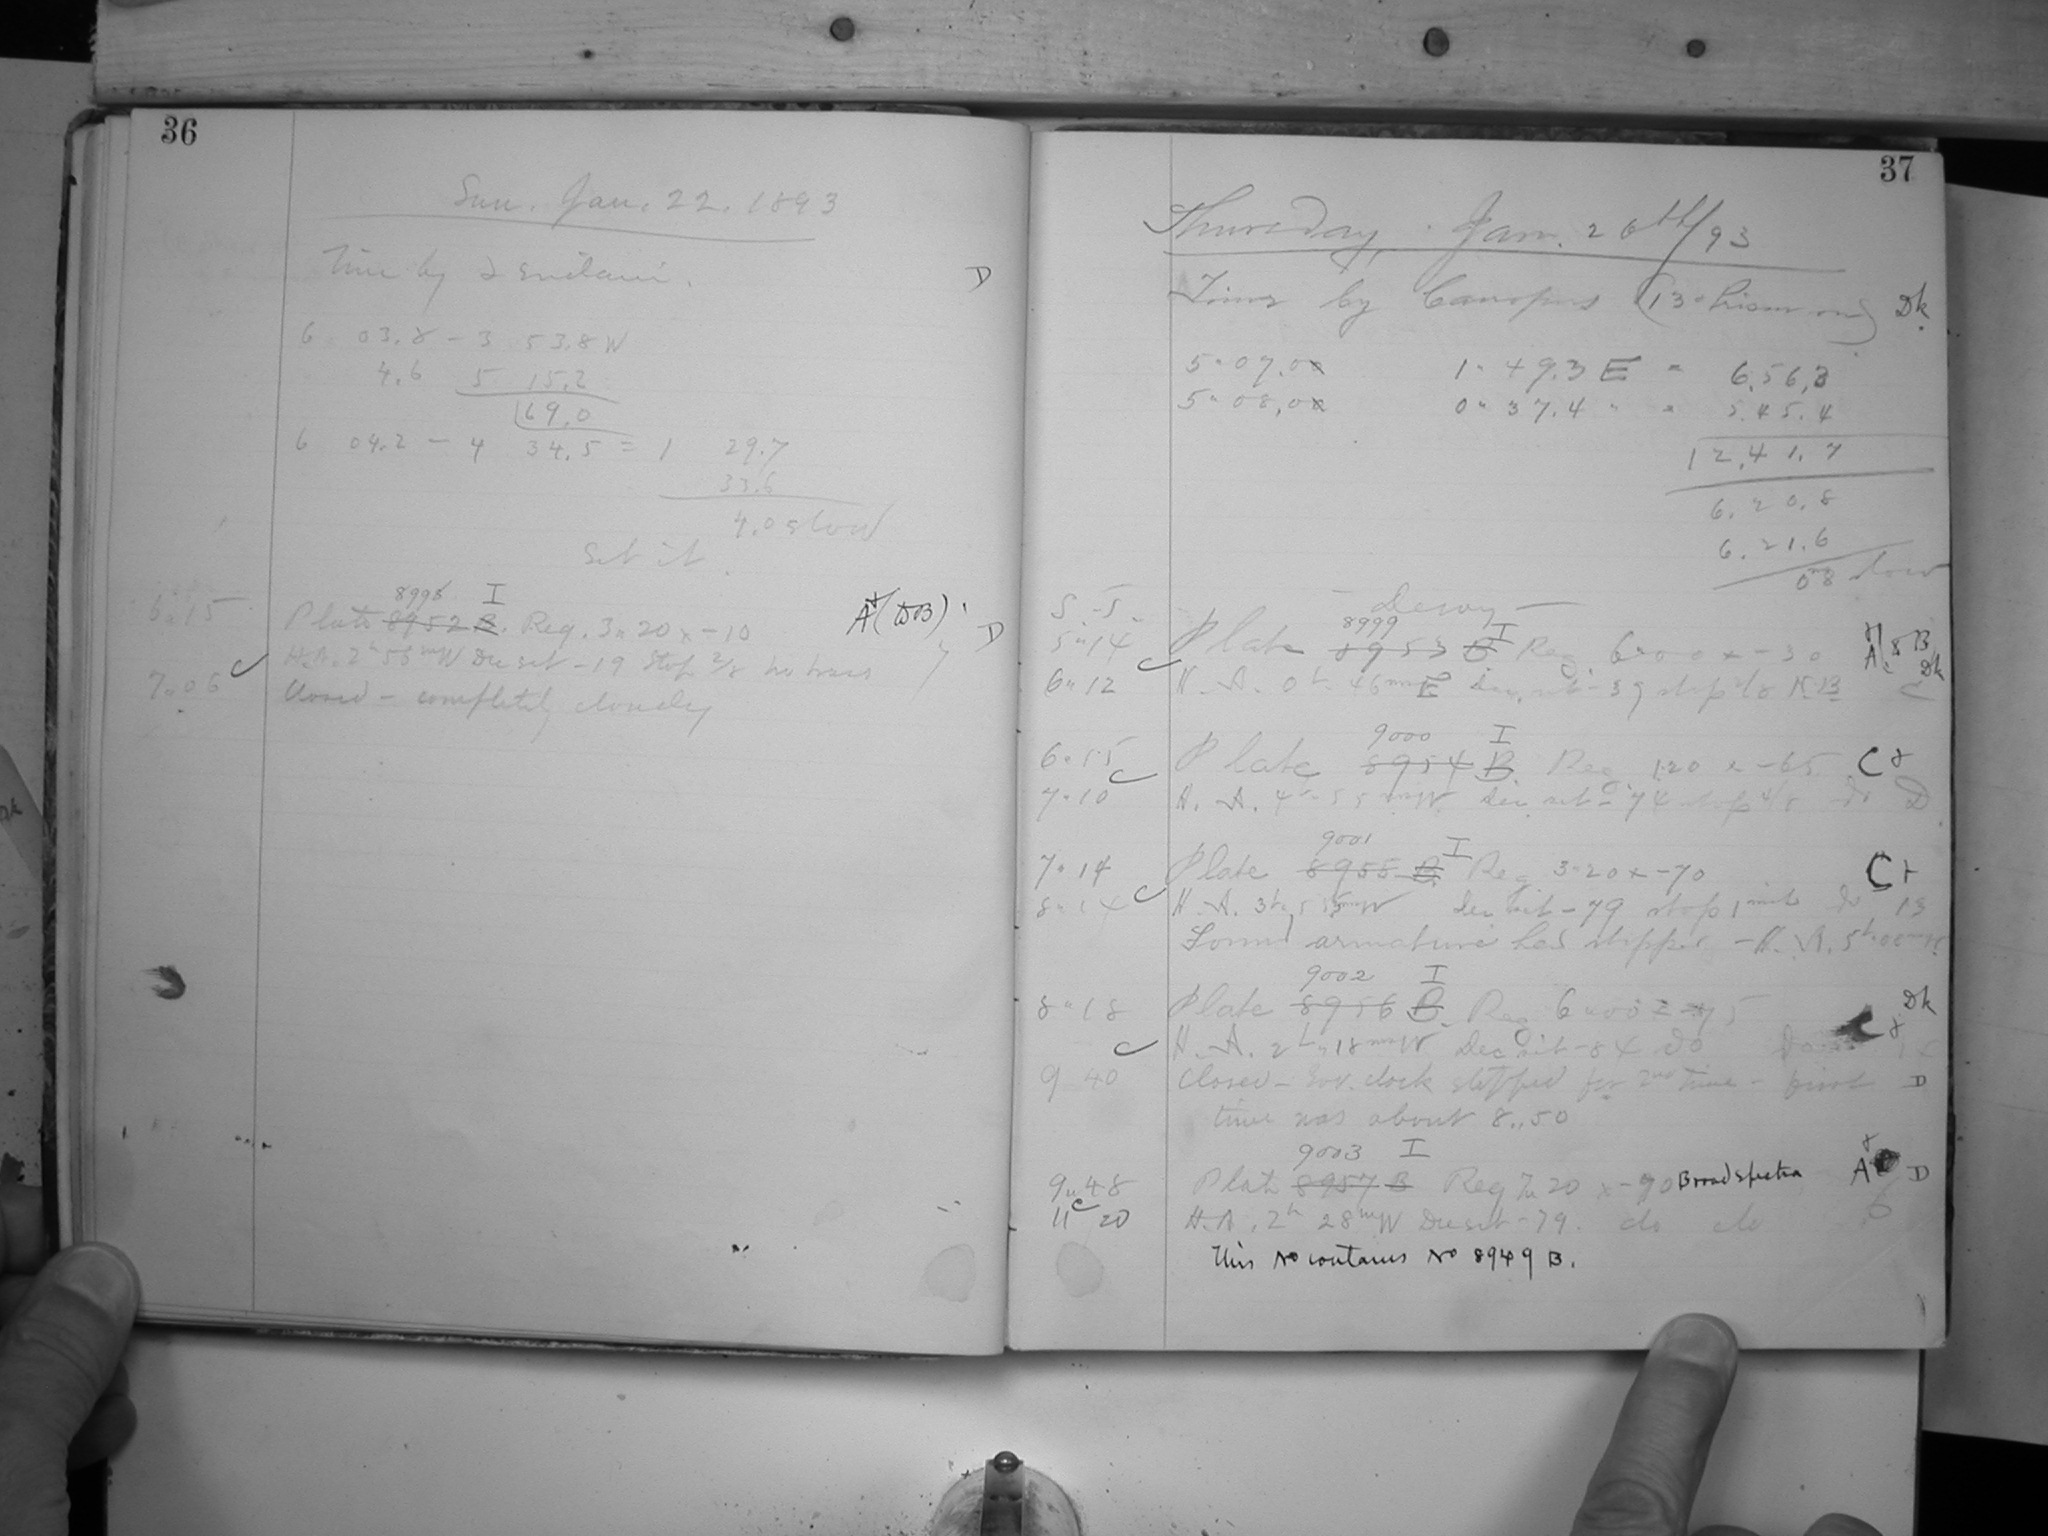 36
Sun. Jan. 22. 1893
Time by
D
6 03.8 - 3 53.8 W
4.6 5 15.2
69.0
6 04.2 - 4 34.5 = 1 29.7
33.6
4.0 slow
Set it.
8998 I
6 15 Plate 8952 B. Reg. 3 20 x -10 A (DOB) D
H.A. 2h 56m W Dec set -19 Stop
7 06 Closed - completely cloudy
37
Thursday, Jan. 26th/93
Time by Canopus (13 Prism on) Dk.
5 07.00 1 49.3 E = 6.56.3
5 08.00 0 37.4 " = 5.45.4
12.41.7
6.20.8
6.21.6
0m8 slow
5 5 - Dewy -
8999 I
5 14 Plate 8953 B Reg 6 00 x -30 A, 8 B Dk
6 12 H.A. 0h 46m E Dec. set -39 stop
9000 I
6 15 Plate 8954 B Reg. 1 20 x -65 C
7 10 H.A. 4h 55m W Dec set -74 stop do D
9001 I
7 14 Plate 8955 B Reg 3 20 x -70 C
8 14 H.A. 3h W Dec set -79 stop do 13
Found armature has stopped - H.A. 5h
9002 I
8 18 Plate 8956 B. Reg 6 00 x -75 Dk
H.A. 2h 18m W Dec set -84 do do
9 40 Closed - Gov. clock stopped for 2nd time - first D
time was about 8.50
9003 I
9 48 Plate 8957 B Reg 7 20 x -70 Broad spectra A D
11 20 H.A. 2h 28m W Dec set -79. do do
This No contains No 8949 B.